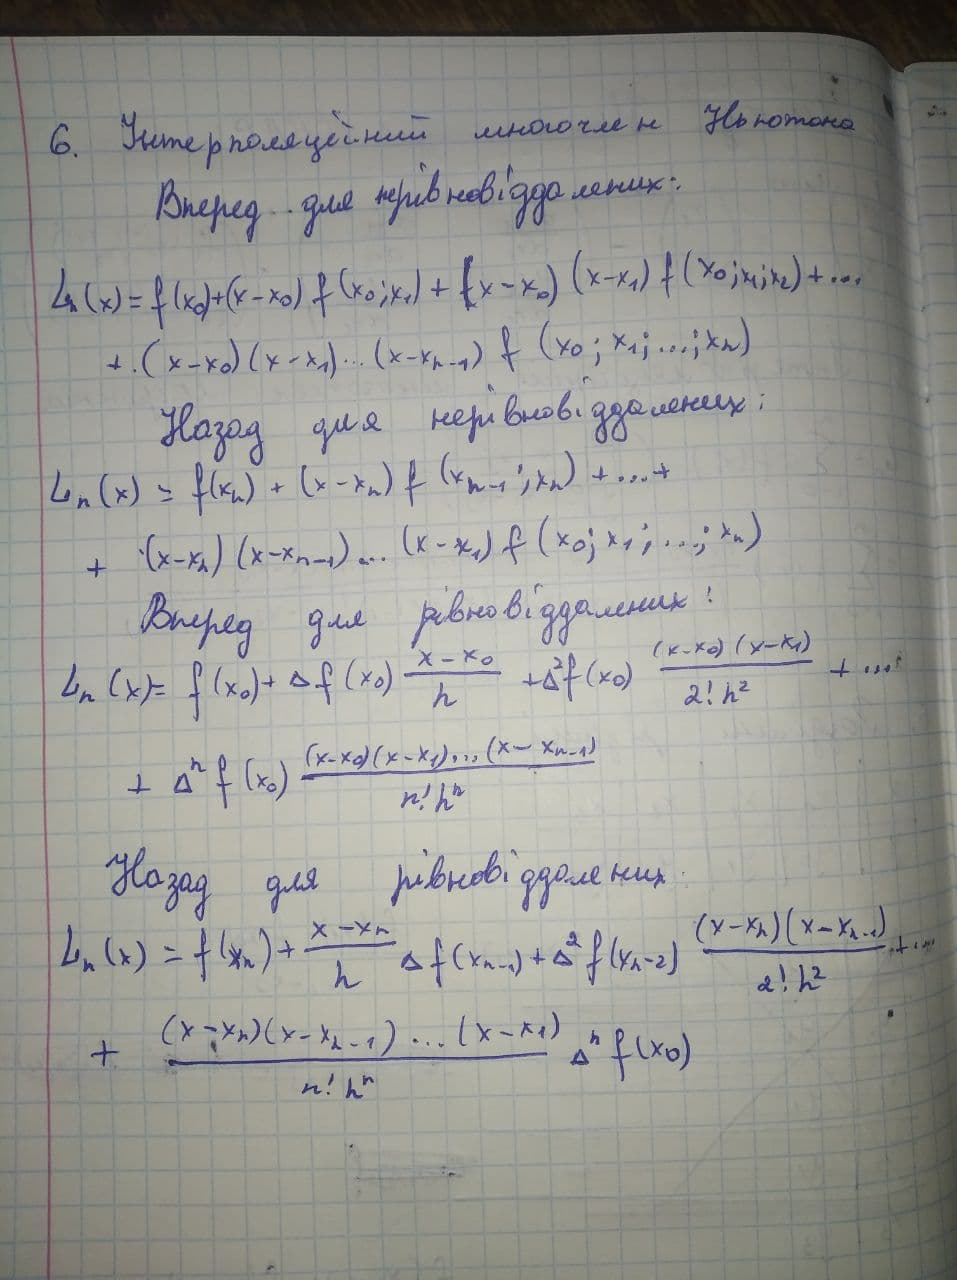 6. Інтерполяційний многочлен Ньютона
Вперед для нерівновіддалених:
Lₙ(x) = f(x₀)+(x-x₀) f(x₀;x₁) + (x-x₀) (x-x₁) f(x₀;x₁;x₂) + ...
+ (x-x₀)(x-x₁)...(x-xₙ₋₁) f (x₀; x₁; ...; xₙ)
Назад для нерівновіддалених:
Lₙ(x) = f(xₙ) + (x-xₙ) f (xₙ₋₁; xₙ) + ... +
+ (x-xₙ) (x-xₙ₋₁) ... (x-x₁) f (x₀; x₁; ...; xₙ)
Вперед для рівновіддалених:
Lₙ(x) = f(x₀) + Δf(x₀) (x-x₀)/h + Δ²f(x₀) (x-x₀)(x-x₁)/2!h² + ...
+ Δⁿf(x₀) (x-x₀)(x-x₁)...(x-xₙ₋₁)/n!hⁿ
Назад для рівновіддалених
Lₙ(x) = f(xₙ) + (x-xₙ)/h Δf(xₙ₋₁) + Δ²f(xₙ₋₂) (x-xₙ)(x-xₙ₋₁)/2!h² + ...
+ (x-xₙ)(x-xₙ₋₁)...(x-x₁)/n!hⁿ Δⁿf(x₀)